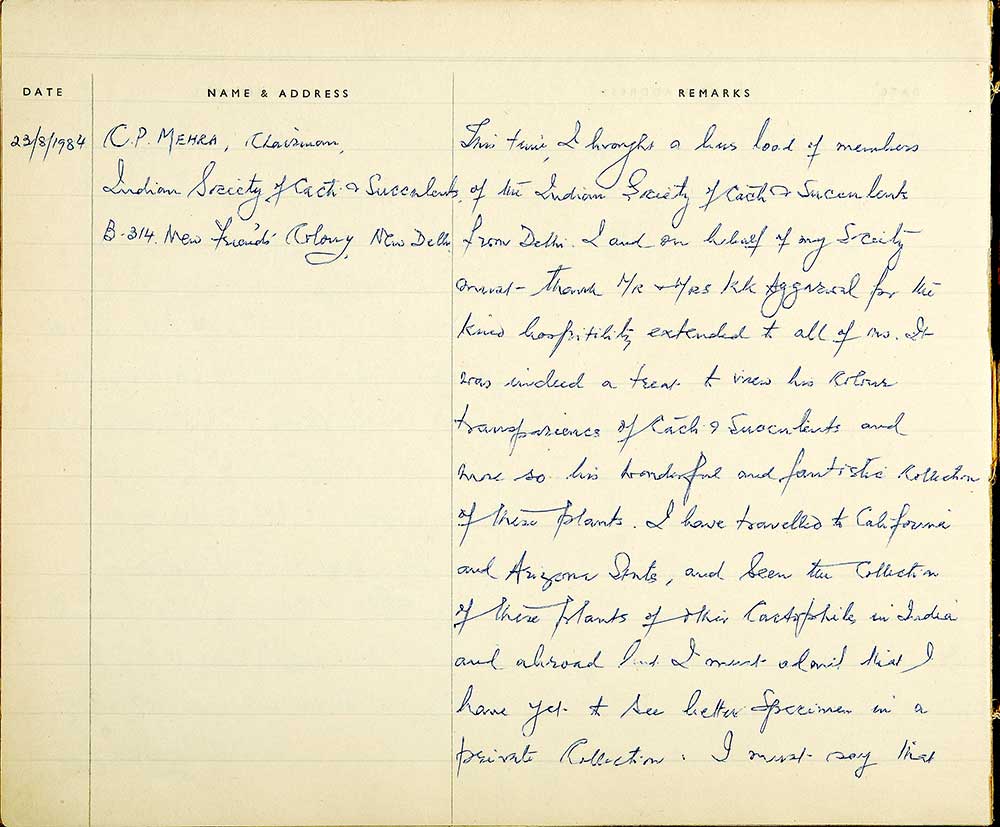 DATE NAME & ADDRESS REMARKS
23/8/1984 C.P. MEHRA, Chairman, This time, I brought a bus load of members
Indian Society of Cacti & Succulents, of the Indian Society of Cacti & Succulents
B-314. New Friends Colony, New Delhi from Delhi. I and on behalf of my Society
must thank Mr & Mrs KK Aggarwal for the
kind hospitility extended to all of us. It
was indeed a treat to view his colour
transpariencs of Cacti & Succulents and
more so his wonderful and fantistic Collection
of these plants. I have travelled to California
and Arizona States, and seen the Collection
of these plants of other Cactophiles in India
and abroad but I must admit that I
have yet to see better specimen in a
private Collection. I must say that